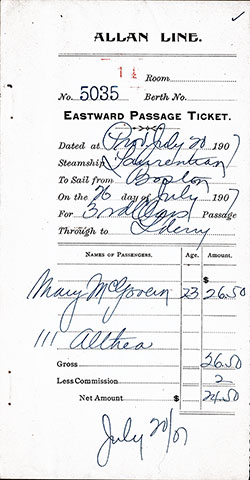 ALLAN LINE.
1½ Room
No. 5035 Berth No.
EASTWARD PASSAGE TICKET.
Dated at Prov July 20 1907
Steamship Laurentian
To Sail from Boston
On the 26 day of July 1907
For 3rd Class Passage
Through to L'derry
NAMES OF PASSENGERS. Age. Amount.
Mary McGovern 23 26.50
111 Althea
Gross 26.50
Less Commission 2
Net Amount $ 24.50
July 20/07